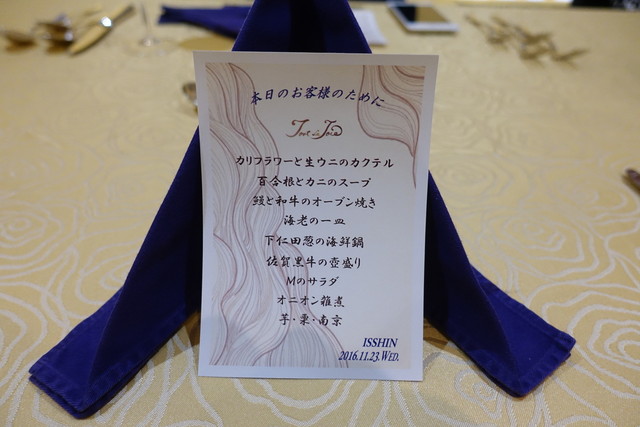 本日のお客様のために
カリフラワーと生ウニのカクテル
百合根とカニのスープ
鰻と和牛のオーブン焼き
海老の一皿
下仁田葱の海鮮鍋
佐賀黒牛の壺盛り
Mのサラダ
オニオン雑煮
芋・栗・南京
ISSHIN
2016.11.23.WED.